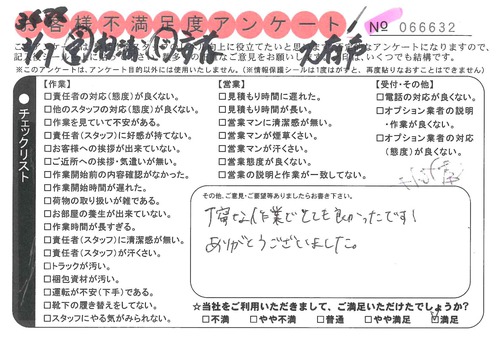 お客様不満足度アンケート
No 066632
※このアンケートは、アンケート目的以外には使用いたしません。(※情報保護シールは1度はがすと、再度貼りなおすことはできません。)
●チェックリスト
【作業】
□責任者の対応(態度)が良くない。
□他のスタッフの対応(態度)が良くない。
□作業を見ていて不安がある。
□責任者(スタッフ)に好感が持てない。
□お客様への挨拶が出来ていない。
□ご近所への挨拶・気遣いが無い。
□作業開始前の内容確認がなかった。
□作業開始時間が遅れた。
□荷物の取り扱いが雑である。
□お部屋の養生が出来ていない。
□作業時間が長すぎる。
□責任者(スタッフ)に清潔感が無い。
□責任者(スタッフ)が汗くさい。
□トラックが汚い。
□梱包資材が汚い。
□運転が不安(下手)である。
□靴下の履き替えをしてない。
□スタッフにやる気がみられない。
【営業】
□見積もり時間に遅れた。
□見積もり時間が長い。
□営業マンに清潔感が無い。
□営業マンが煙草くさい。
□営業マンが汗くさい。
□営業態度が良くない。
□営業の説明と作業が一致してない。
【受付・その他】
□電話の対応が良くない。
□オプション業者の説明
・作業が良くない。
□オプション業者の対応
(態度)が良くない。
その他、ご意見・ご要望等ありましたらお書き下さい。
丁寧な作業でとても良かったです!
ありがとうございました。
☆当社をご利用いただきまして、ご満足いただけたでしょうか?
□不満 □やや不満 □普通 □やや満足 □満足